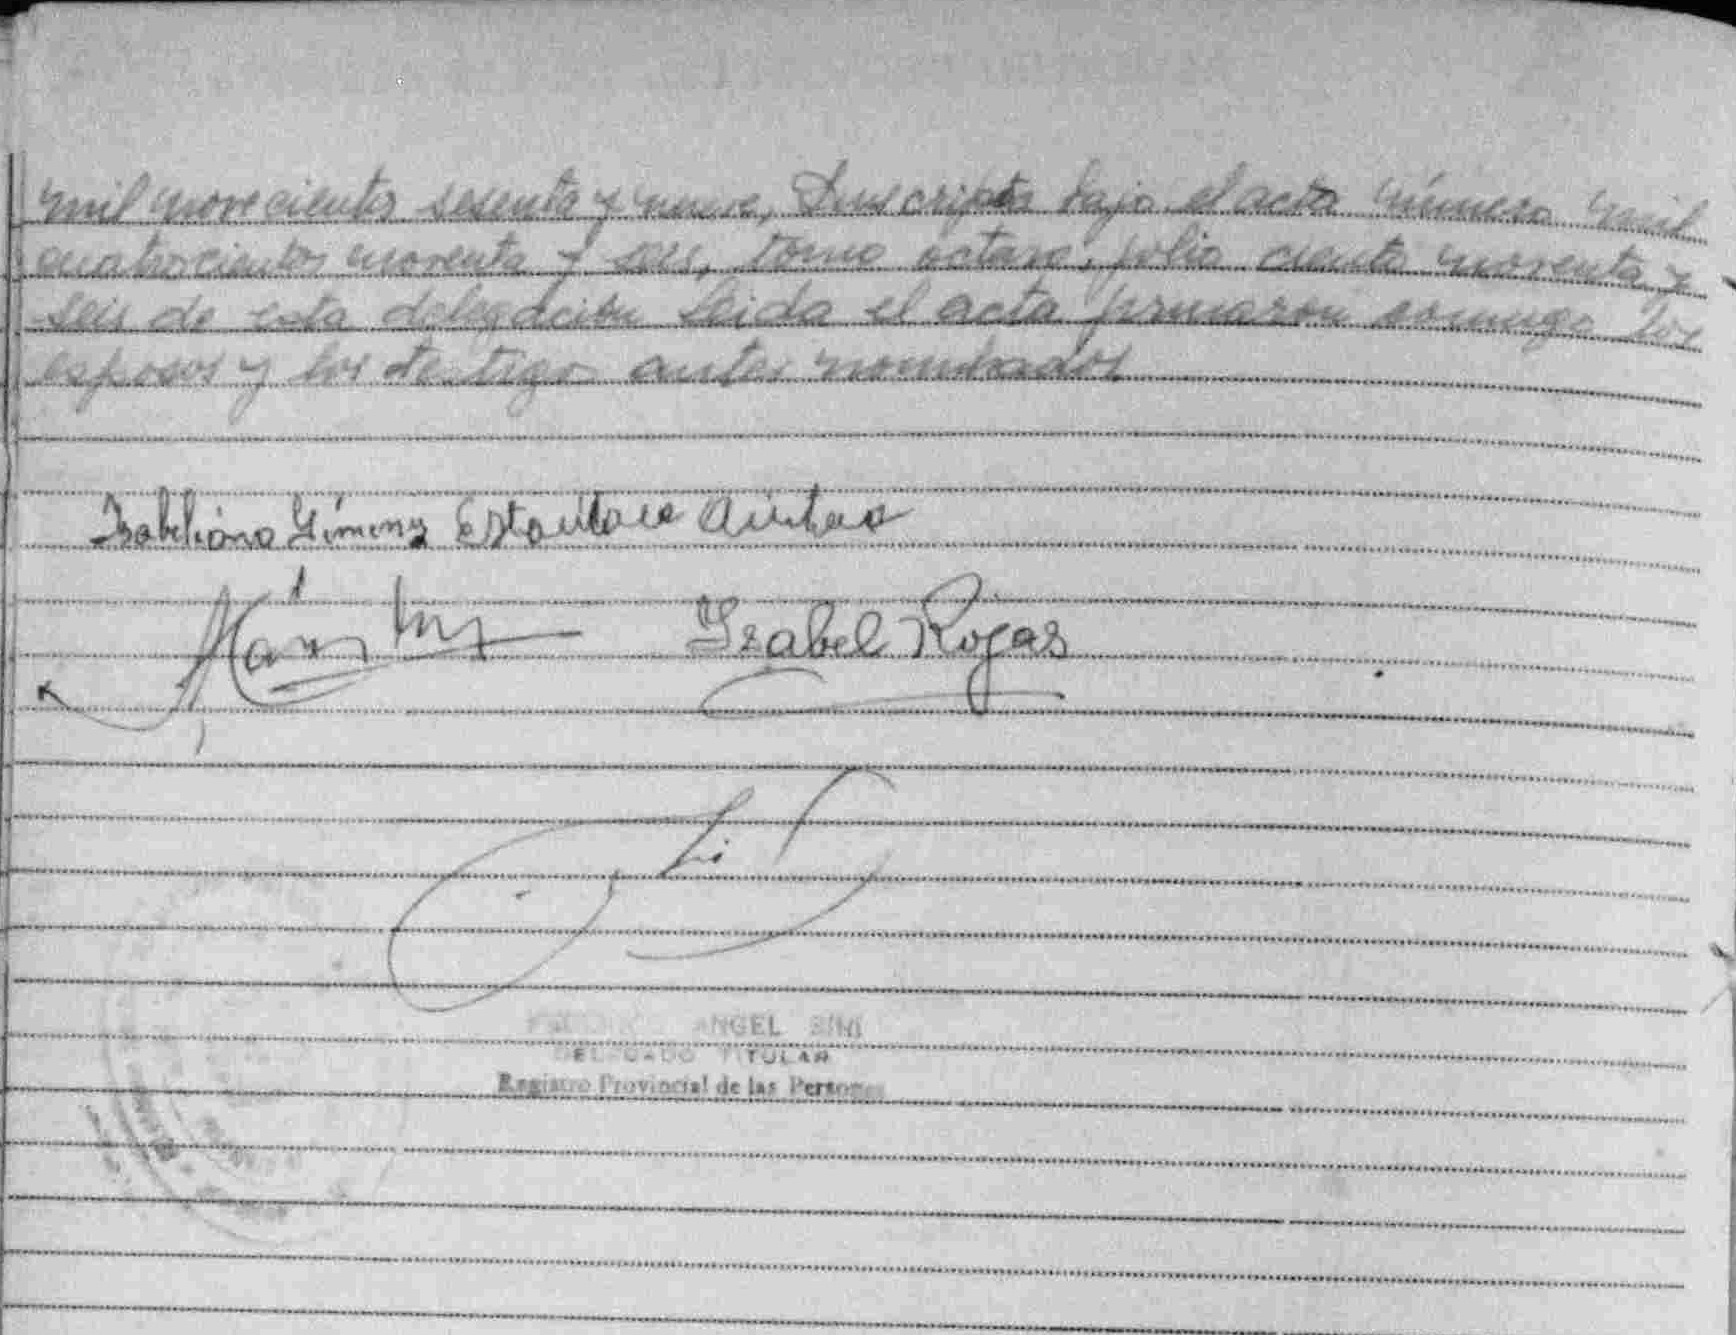 mil novecientos sesenta y nueve, Inscripta bajo el acta número mil
cuatrocientos noventa y seis, tomo octavo, folio ciento noventa y
seis de esta delegación Leida el acta firmaron conmigo los
esposos y los testigos antes nombrados
Isabeliana Gimenez
Izabel Rojas
ANGEL SINI
DELEGADO TITULAR
Registro Provincial de las Personas